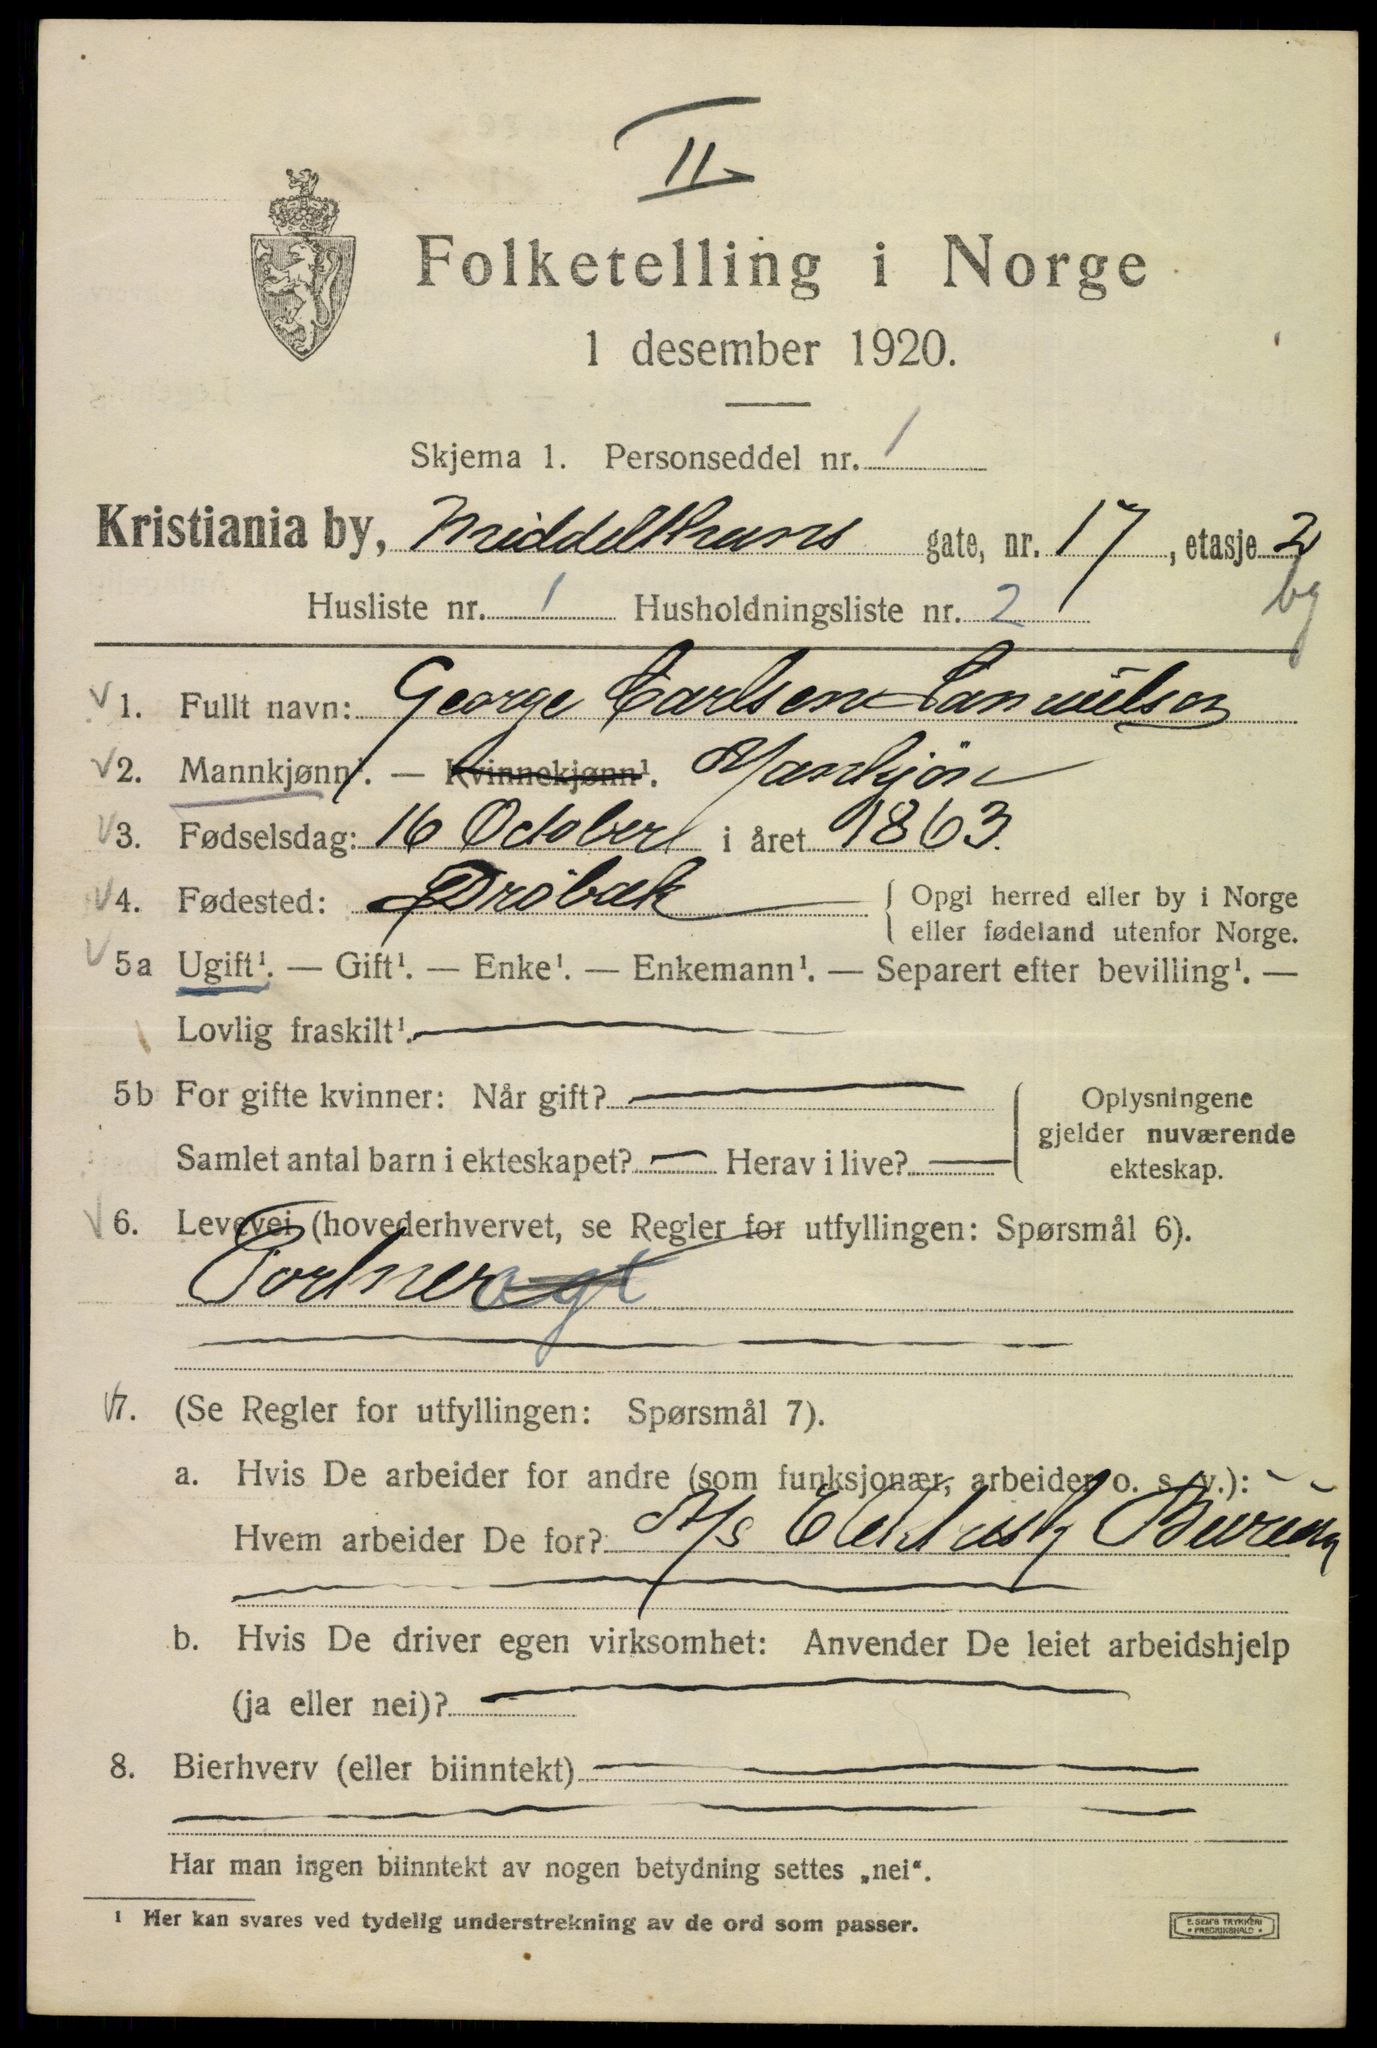 II
Folketelling i Norge
1 desember 1920.
Skjema 1. Personseddel nr. 1
Kristiania by, Middelthuns gate, nr. 17, etasje 2
bg
Husliste nr. 1 Husholdningsliste nr. 2
1. Fullt navn: George Carlsen Samuelson
2. Mannkjønn¹. — Kvinnekjønn¹. Mankjön
3. Fødselsdag: 16 October i året 1863.
4. Fødested: Dröbak { Opgi herred eller by i Norge
eller fødeland utenfor Norge.
5a Ugift¹. — Gift¹. — Enke¹. — Enkemann¹. — Separert efter bevilling¹. —
Lovlig fraskilt¹.
5b For gifte kvinner: Når gift? { Oplysningene
gjelder nuværende
Samlet antal barn i ekteskapet? — Herav i live? —
ekteskap.
6. Levevei (hovederhvervet, se Regler for utfyllingen: Spørsmål 6).
Portner
7. (Se Regler for utfyllingen: Spørsmål 7).
a. Hvis De arbeider for andre (som funksjonær, arbeider o. s. v.):
Hvem arbeider De for? A/s Elektrisk Bureau
b. Hvis De driver egen virksomhet: Anvender De leiet arbeidshjelp
(ja eller nei)?
8. Bierhverv (eller biinntekt)
Har man ingen biinntekt av nogen betydning settes „nei“.
¹ Her kan svares ved tydelig understrekning av de ord som passer.
E. SEM'S TRYKKERI
* FREDRIKSHALD *